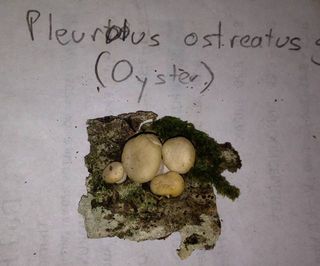 Pleurotus ostreatus
(Oyster)